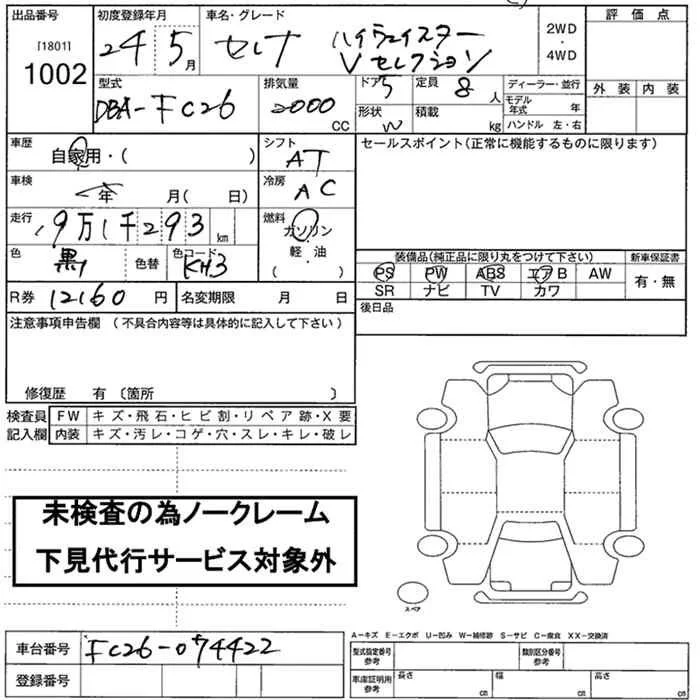 出品番号 初度登録年月 車名・グレード 評価点
[1801] 1002
24年5月 セレナ ハイウェイスター Vセレクション
2WD・4WD
型式 排気量 ドア 5 定員 8人 ディーラー・並行
外装 内装
DBA-FC26 2000CC
形状 W 積載 kg モデル年式 年
ハンドル 左・右
車歴 自家用・( ) シフト AT
セールスポイント(正常に機能するものに限ります)
車検 年 月( 日) 冷房 AC
走行 9万1千293km 燃料 ガソリン・軽油・( )
色 黒 色替 色コード KH3
装備品(純正品に限り丸をつけて下さい) 新車保証書
PS PW ABS エアB AW 有・無
SR ナビ TV カワ
R券 12160円 名変期限 月 日
後日品
注意事項申告欄 (不具合内容等は具体的に記入して下さい)
修復歴 有 〔箇所 〕
検査員 FW キズ・飛石・ヒビ割・リペア跡・X要
記入欄 内装 キズ・汚レ・コゲ・穴・スレ・キレ・破レ
未検査の為ノークレーム
下見代行サービス対象外
スペア
A-キズ E-エクボ U-凹み W-補修跡 S-サビ C-腐食 XX-交換済
車台番号 FC26-074422
型式指定番号 参考 類別区分番号 参考
登録番号
車庫証明用 参考 長さ cm 幅 cm 高さ cm